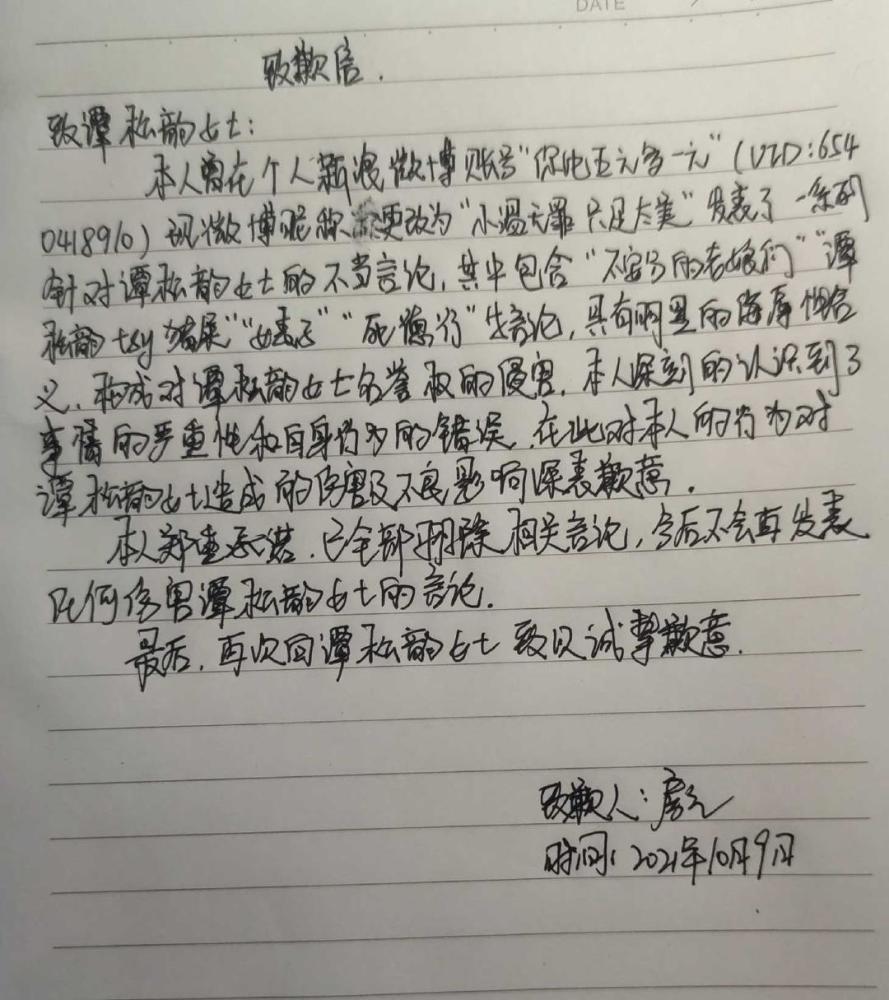 DATE
致歉信.
致谭松韵女士:
本人曾在个人新浪微博账号“你她五元多一元”(UID:654
0418910)现微博昵称更改为“小温无罪 只是太美”发表了一系列
针对谭松韵女士的不当言论,其中包含“不安分的老娘们”“谭
松韵tsy 猪屎”“女表子”“死德行”等言论,具有明显的侮辱性含
义,构成对谭松韵女士名誉权的侵害.本人深刻的认识到了
事情的严重性和自身行为的错误,在此对本人的行为对
谭松韵女士造成的伤害及不良影响深表歉意.
本人郑重承诺,已全部删除相关言论,今后不会再发表
任何伤害谭松韵女士的言论.
最后,再次向谭松韵女士致以诚挚歉意.
致歉人:
时间:2021年10月9日